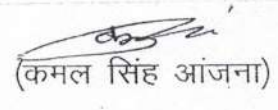 (कमल सिंह आंजना)